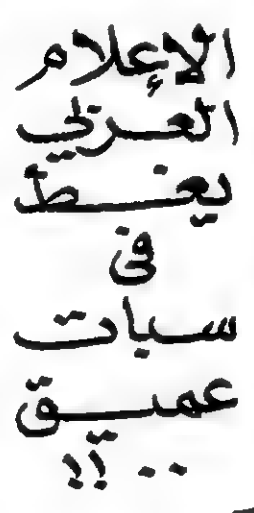 الإعلام
العربي
يغط
في
سبات
عميق
..!!